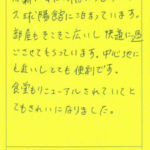 ス球陽館に泊まっています。
部屋もそこそこ広いし快適に過
ごさせてもらっています。中心地に
も近いしとても便利です。
食堂もリニューアルされていて
とてもきれいになりました。